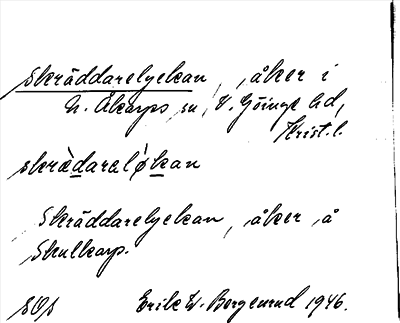 Skräddarelyckan, åker i
N. Åkarps sn, V. Göinge hd,
Krist. l.
skrädaralökan
Skräddarelyckan, åker å
Skulkarp.
Erik W. Bergmund 1946.